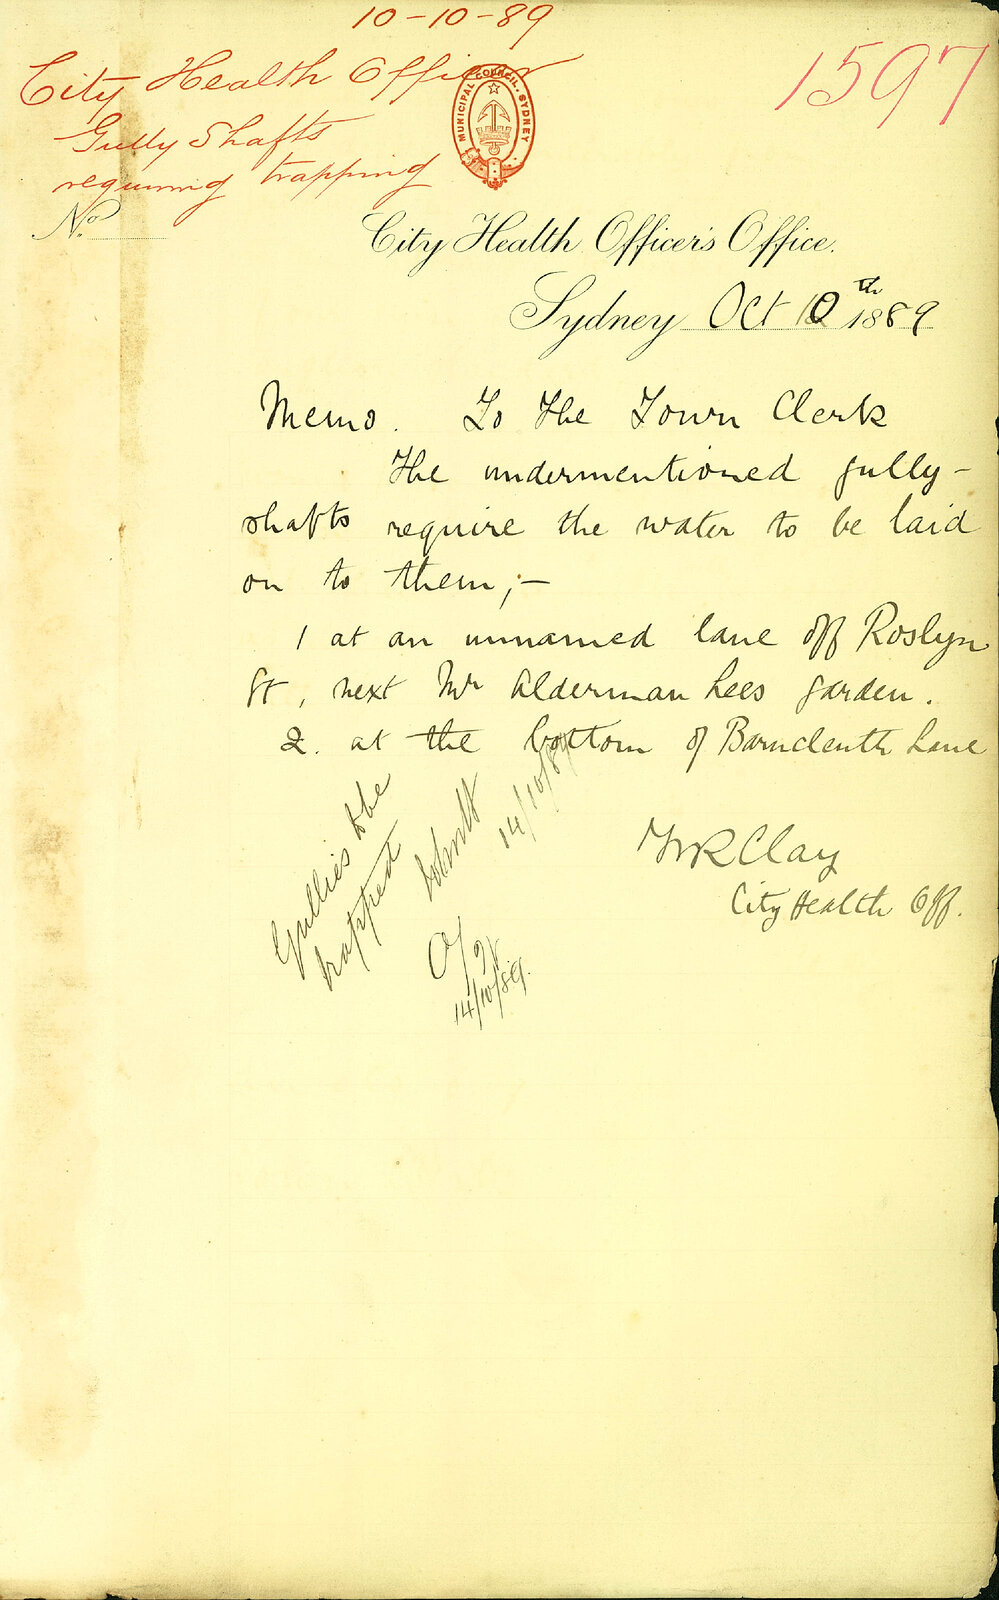 10-10-89
City Health Officer
Gully Shafts
requiring trapping
1597
MUNICIPAL COUNCIL. SYDNEY
No.
City Health Officer's Office.
Sydney Oct 10th 1889
Memo. To The Town Clerk
The undermentioned gully-
shafts require the water to be laid
on to them;-
1 at an unnamed lane off Roslyn
St, next Mr Alderman Lees garden.
2. at the bottom of Barncleuth Lane
Gullies to be
trapped
14/10/89
14/10/89.
WR Clay
City Health Off.